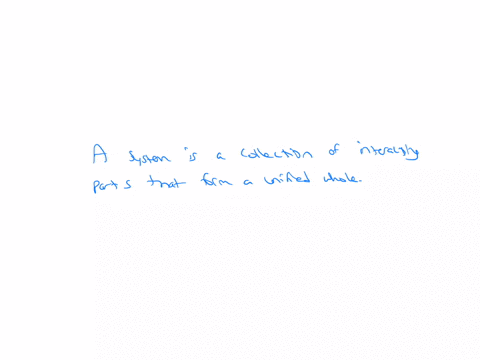 A system is a collection of interacting
parts that form a unified whole.